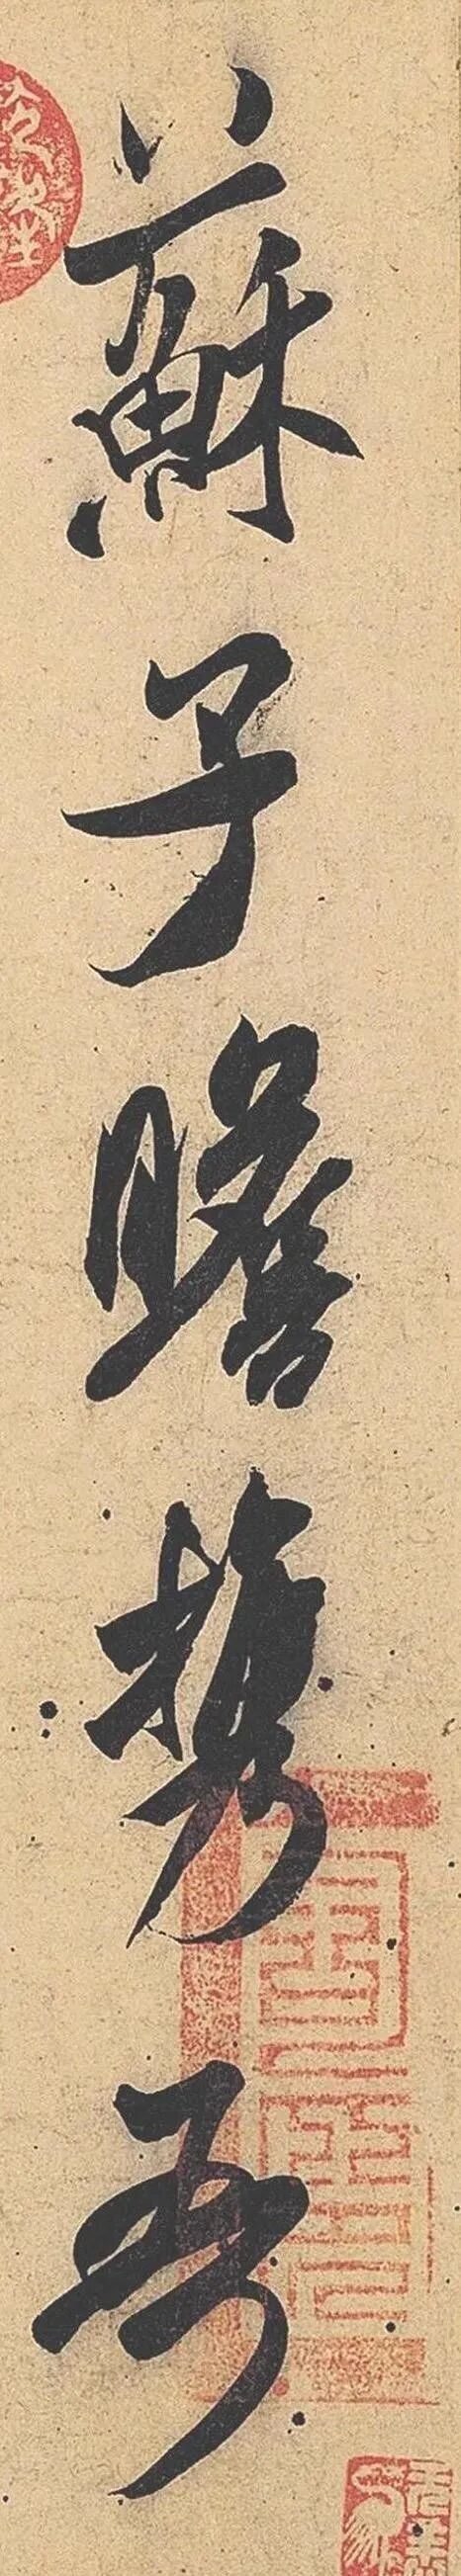 蘇子瞻携吾